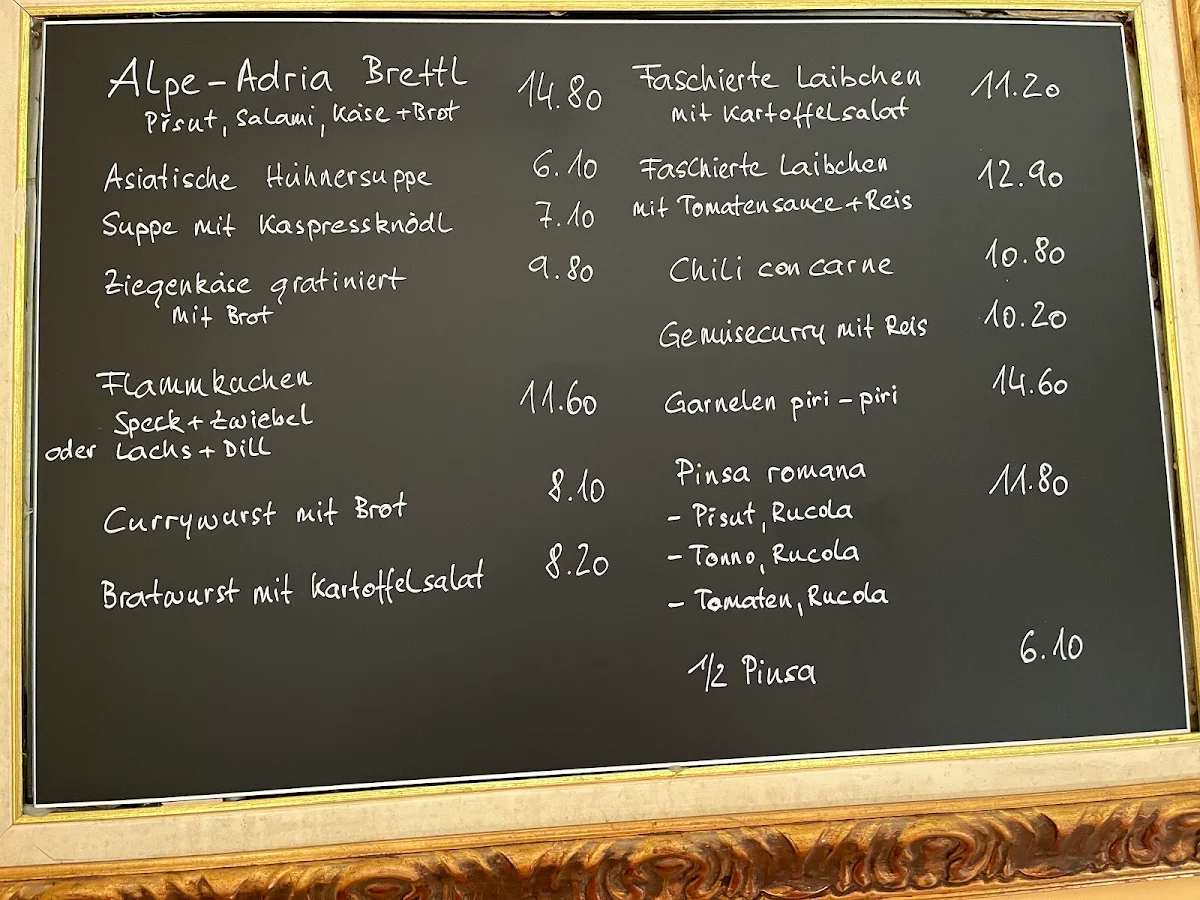 Alpe-Adria Brettl 14.80
Pršut, Salami, Käse + Brot
Asiatische Hühnersuppe 6.10
Suppe mit Kaspressknödl 7.10
Ziegenkäse gratiniert 9.80
mit Brot
Flammkuchen 11.60
Speck + Zwiebel
oder Lachs + Dill
Currywurst mit Brot 8.10
Bratwurst mit Kartoffelsalat 8.20
Faschierte Laibchen 11.20
mit Kartoffelsalat
Faschierte Laibchen 12.90
mit Tomatensauce + Reis
Chili con carne 10.80
Gemüsecurry mit Reis 10.20
Garnelen piri-piri 14.60
Pinsa romana 11.80
- Pršut, Rucola
- Tonno, Rucola
- Tomaten, Rucola
1/2 Pinsa 6.10